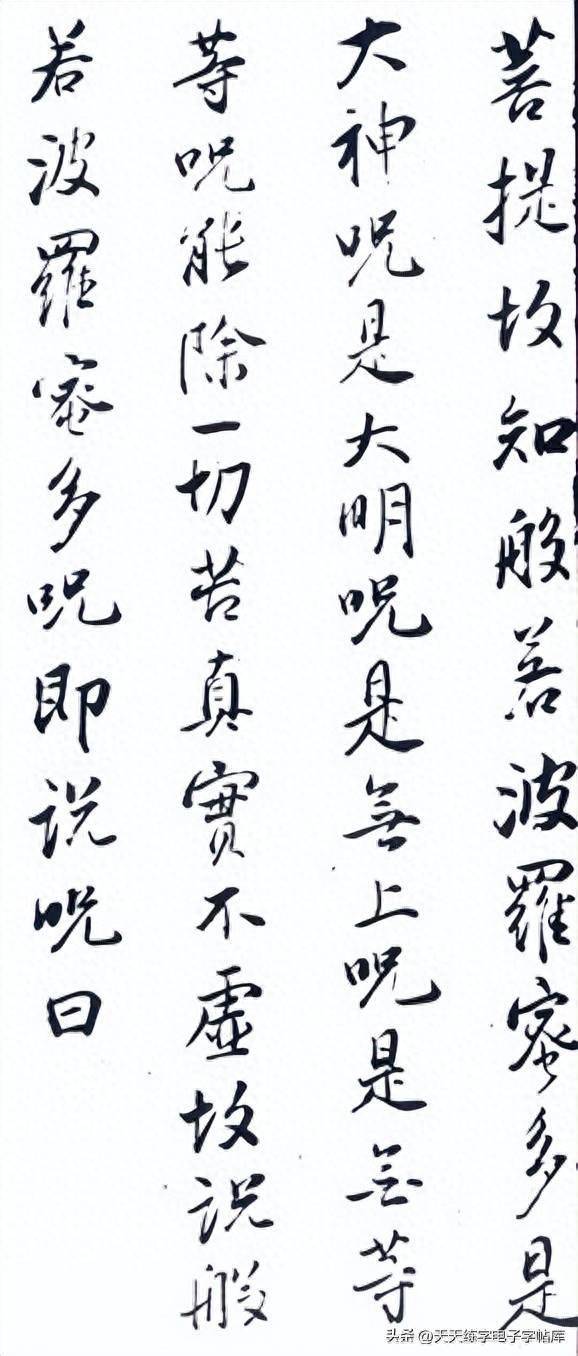 菩提故知般若波羅蜜多是
大神呪是大明呪是無上呪是無等
等呪能除一切苦真實不虛故説般
若波羅蜜多呪即説呪曰
头条 @天天练字电子字帖库